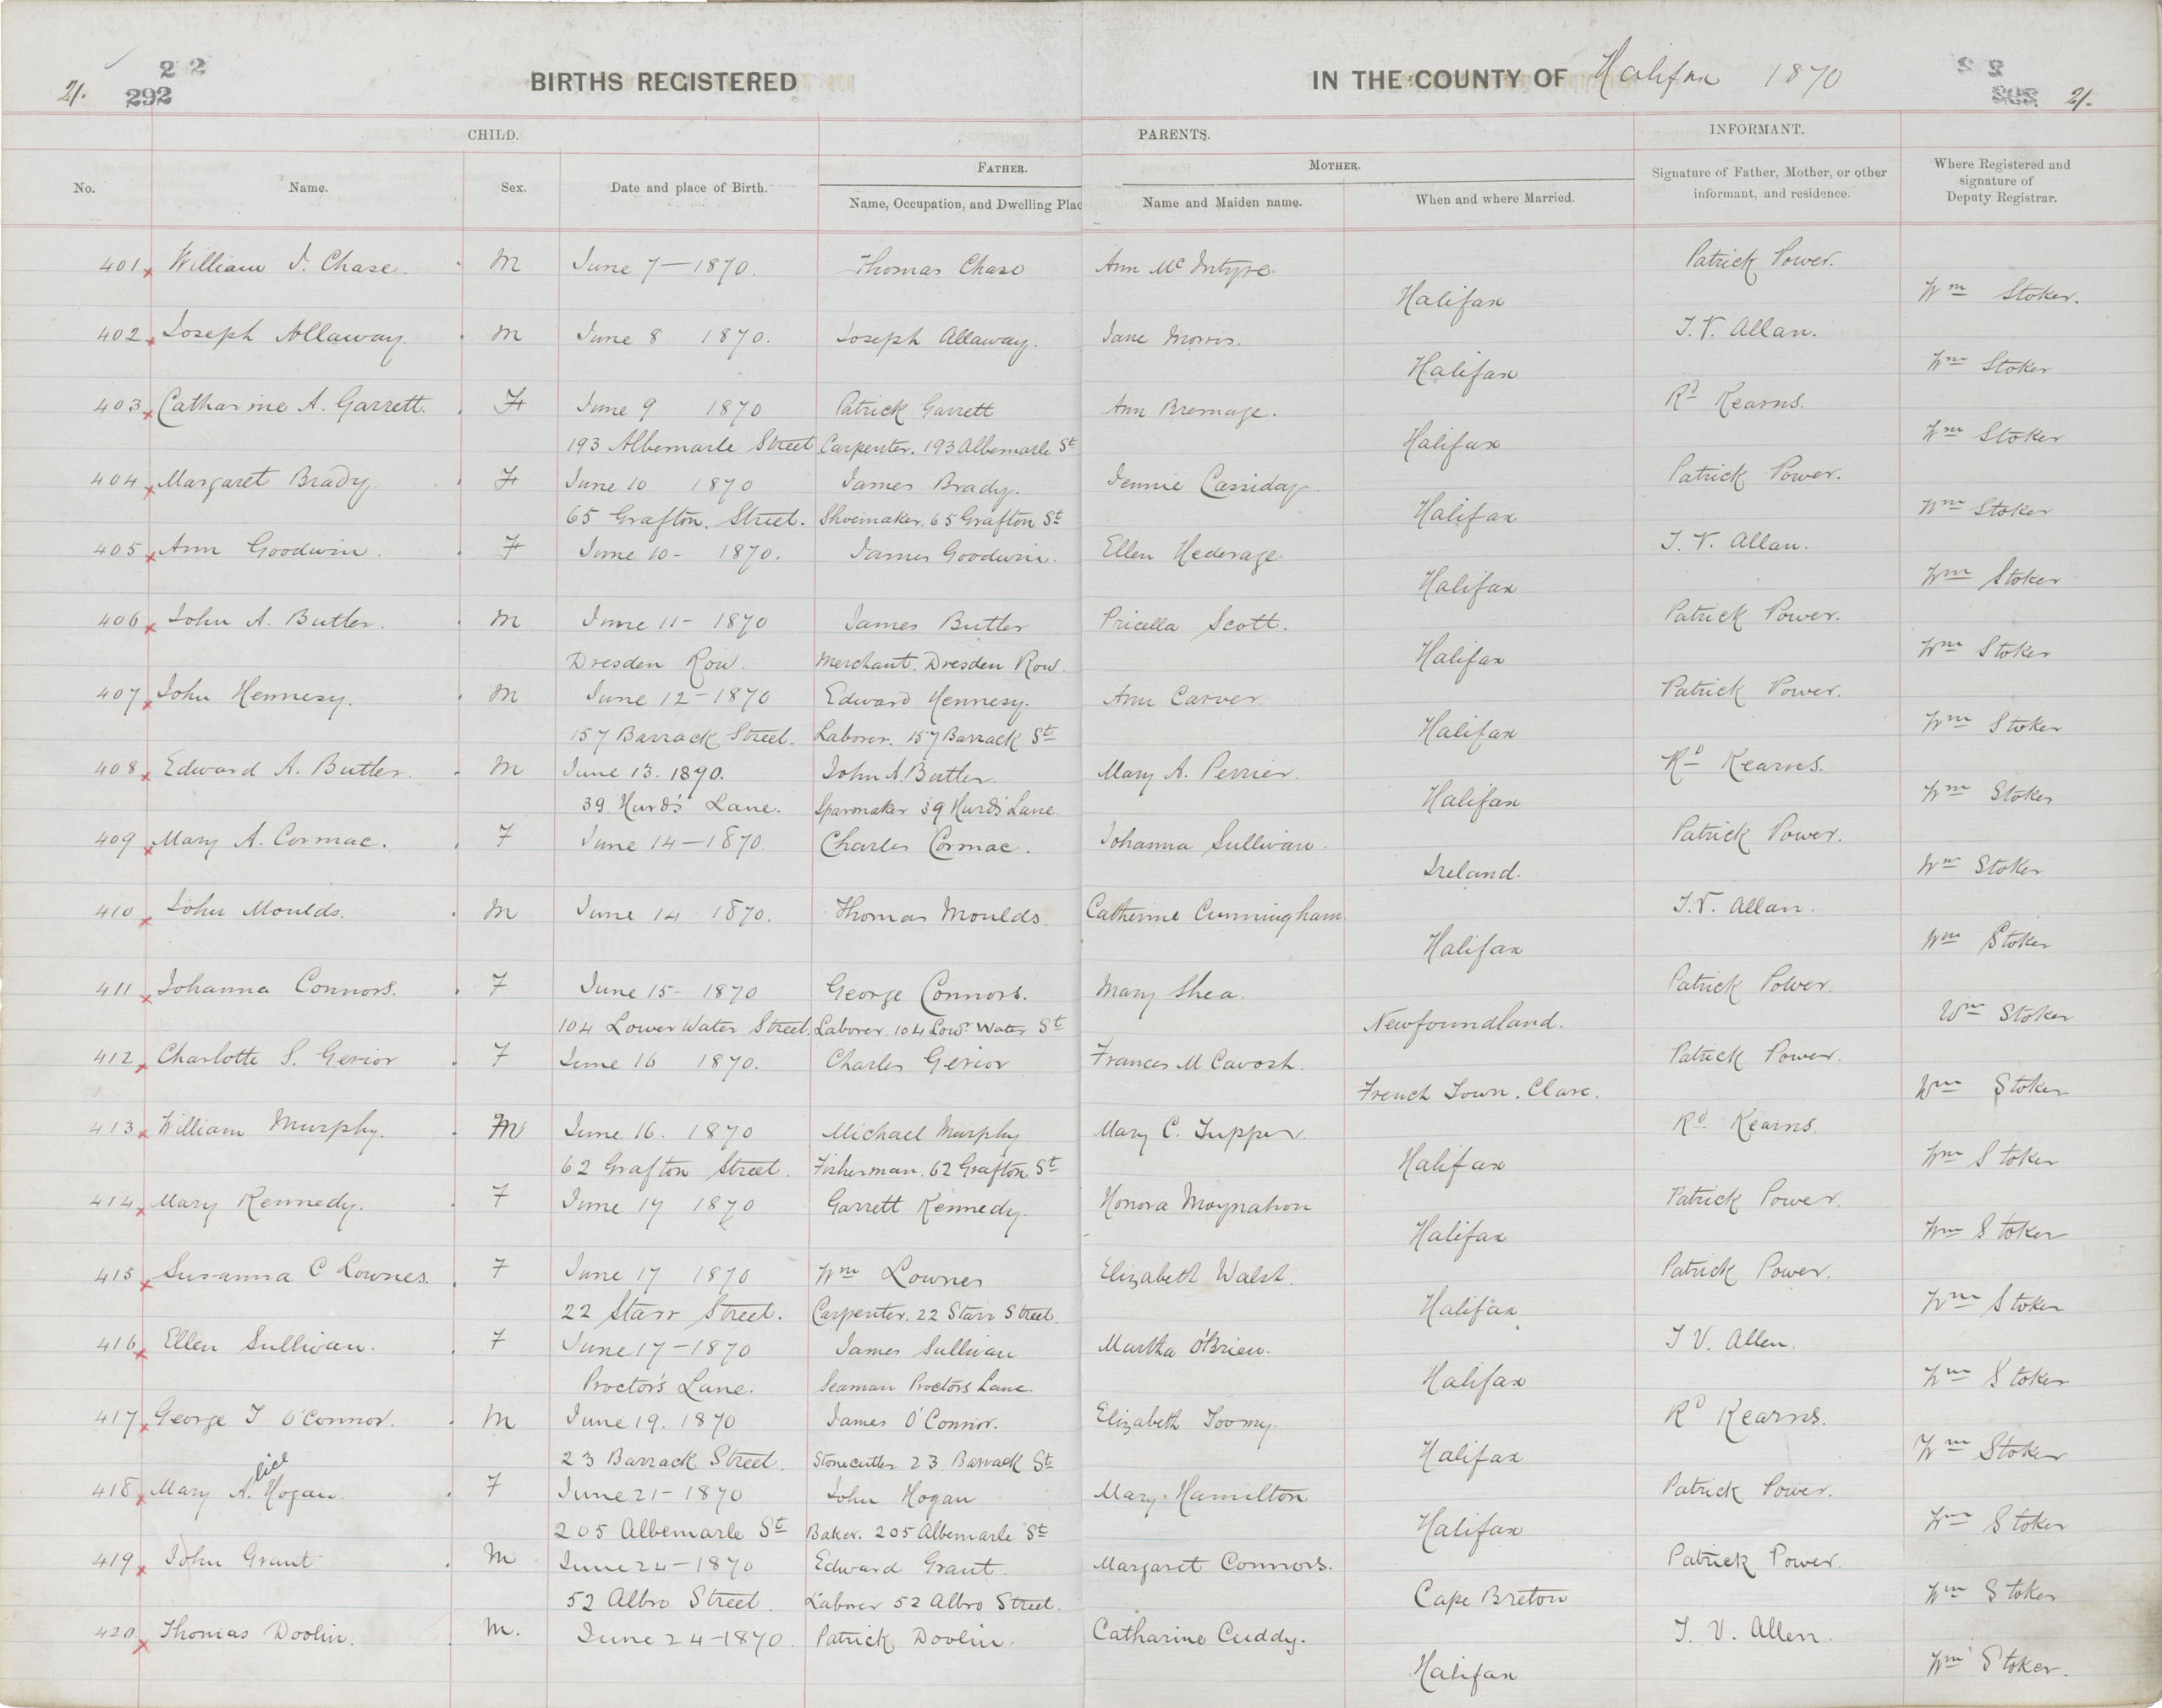 21. 22 292 BIRTHS REGISTERED IN THE COUNTY OF Halifax 1870 21.
CHILD. PARENTS. INFORMANT.
FATHER. MOTHER.
No. Name. Sex. Date and place of Birth. Name, Occupation, and Dwelling Plac Name and Maiden name. When and where Married. Signature of Father, Mother, or other informant, and residence. Where Registered and signature of Deputy Registrar.
401 William J. Chase. M June 7 — 1870. Thomas Chase Ann McIntyre. Patrick Power.
Halifax Wm Stoker.
402 Joseph Allaway. M June 8 1870. Joseph Allaway. Jane Morris. T. V. Allan.
Halifax Wm Stoker
403 Catharine A. Garrett. F June 9 1870 Patrick Garrett Ann Bremage. Rd Kearns.
193 Albemarle Street Carpenter. 193 Albemarle St Halifax Wm Stoker
404 Margaret Brady. F June 10 1870 James Brady. Jennie Cassiday Patrick Power.
65 Grafton. Street. Shoemaker. 65 Grafton St Halifax Wm Stoker
405 Ann Goodwin. F June 10 - 1870. James Goodwin. Ellen Hederage. T. V. Allan.
Halifax Wm Stoker
406 John A. Butler. M June 11 - 1870 James Butler Pricella Scott. Patrick Power.
Dresden Row. Merchant. Dresden Row. Halifax Wm Stoker
407 John Hennesy. M June 12 - 1870 Edward Hennesy. Ann Carver. Patrick Power.
157 Barrack Street. Laborer. 157 Barrack St Halifax Wm Stoker
408 Edward A. Butler. M June 13. 1890. John A. Butler. Mary A. Perrier. Rd Kearns.
39 Hurd's Lane. Sparmaker 39 Hurd's Lane. Halifax Wm Stoker
409 Mary A. Cormac. F June 14 — 1870. Charles Cormac. Johanna Sullivan. Patrick Power.
Ireland. Wm Stoker
410 John Moulds. M June 14 1870. Thomas Moulds. Catherine Cunningham. T. V. Allan.
Halifax Wm Stoker
411 Johanna Connors. F June 15 - 1870 George Connors. Mary Shea. Patrick Power.
104 Lower Water Street. Laborer. 104 Lowr Water St Newfoundland. Wm Stoker
412 Charlotte S. Gerior F June 16 1870. Charles Gerior Frances M Cavosh. Patrick Power.
French Town. Clare. Wm Stoker
413 William Murphy. M June 16. 1870 Michael Murphy Mary C. Tupper. Rd Kearns.
62 Grafton Street. Fisherman. 62 Grafton St Halifax Wm Stoker
414 Mary Kennedy. F June 17 1870 Garrett Kennedy. Honora Moynahon Patrick Power.
Halifax Wm Stoker
415 Susanna C Lownes. F June 17 1870 Wm Lownes Elizabeth Walsh. Patrick Power.
22 Starr Street. Carpenter. 22 Starr Street. Halifax Wm Stoker
416 Ellen Sullivan. F June 17 - 1870 James Sullivan Martha O'Brien. T V. Allen.
Proctor's Lane. Seaman Proctors Lane. Halifax Wm Stoker
417 George T O'Connor. M June 19. 1870 James O'Connor. Elizabeth Toomy. Rd Kearns.
23 Barrack Street. Stonecutter 23 Barrack St Halifax Wm Stoker
418 Mary Alice Hogan. F June 21 - 1870 John Hogan Mary Hamilton Patrick Power.
205 Albemarle St Baker. 205 Albemarle St Halifax Wm Stoker
419 John Grant M June 24 - 1870 Edward Grant. Margaret Connors. Patrick Power.
52 Albro Street. Laborer 52 Albro Street. Cape Breton Wm Stoker
420 Thomas Doolin. M. June 24 - 1870 Patrick Doolin. Catharine Cuddy. T. V. Allen.
Halifax Wm Stoker.